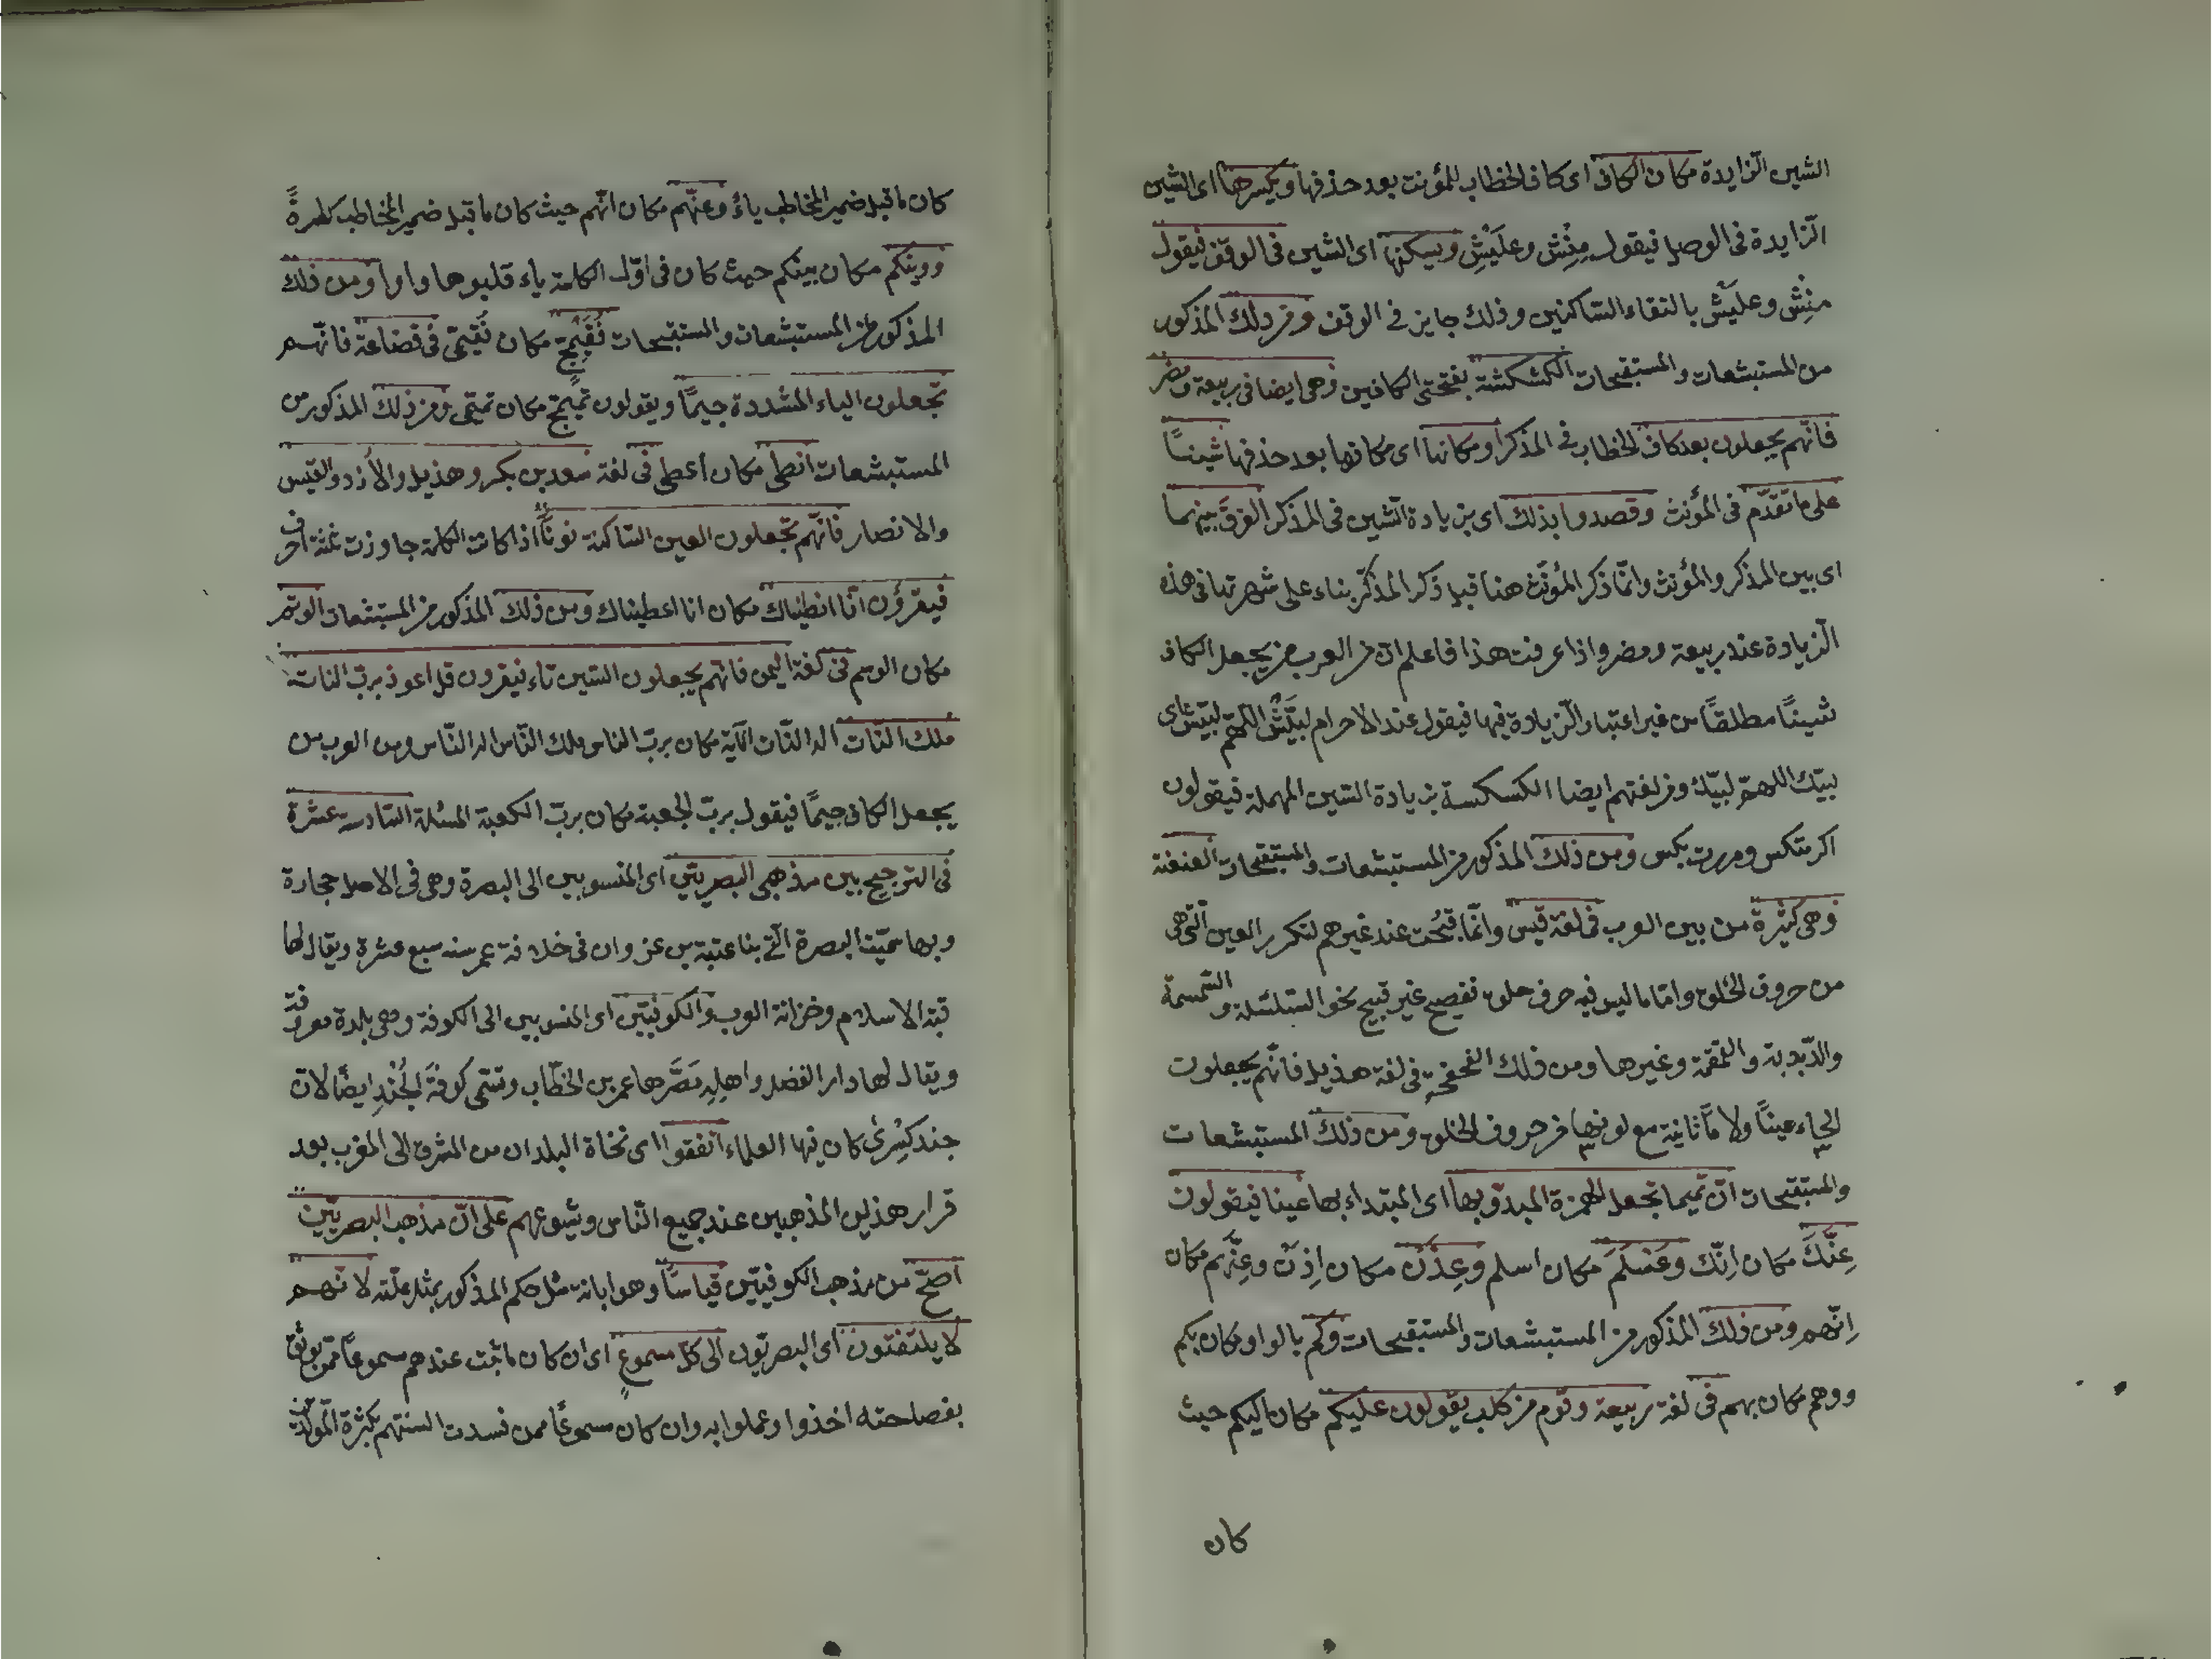 الشين الزايدة مكان الكاف اى كاف الخطاب للمؤنث بعد حذفها ويكسرها اى الشين
الزايدة فى الوصل فيقول مِنْشِ وعلَيْشِ ويسكنها اى الشين فى الوقف فيقول
منِشْ وعليْشْ بالتقاء الساكنين وذلك جايز فى الوقف ومن ذلك المذكور
من المستبشعات والمستقبحات الكشكشة بفتحتى الكافين وهى ايضا فى ربيعة ومضر
فانهم يجعلون بعد كاف الخطاب فى المذكر او مكانها اى مكانها بعد حذفها شينًا
على ما تقدّم فى المؤنث وقصدوا بذلك اى بزيادة الشين فى المذكر الفرقَ بينهما
اى بين المذكر والمؤنث وانّما ذكر المؤنّث هنا قبل ذكر المذكّر بناء على شهرتها فى هذه
الزيادة عند ربيعة ومضر واذا عرفت هذا فاعلم انّ من العرب من يجعل الكاف
شينًا مطلقًا من غير اعتبار الزيادة فيها فيقول عند الاحرام لبّيْش اللهمّ لبّيْش اى
لبيك اللهمّ لبّيك ومن لغتهم ايضا الكسكسة بزيادة السّين المهملة فيقولون
اكرمتكس ومررت بكس ومن ذلك المذكور من المستبشعات والمستقبحات العنعنة
وهى كثيرة من بين العرب فى لغة قيس وانّما قبُحت عند غيرهم لتكرر العين الّتى هى
من حروف الحلق وامّا ما ليس فيه حرف حلق ففصيح غير قبيح نحو السّلسلة والسّمسمة
والدّبدبة والقمقمة وغيرها ومن ذلك الفحفحة فى لغة هذيل فانّهم يجعلون
الحاء عينًا ولا ثانية مع لونها من حروف الحلق ومن ذلك المستبشعات
والمستقبحات انّ تميما تجعل الهمزة المبدوّ بها اى المبتداء بها عينا فيقولون
عِنَّكَ مكان اِنّك وعَسْلَمَ مكان اسلم وعِذَنْ مكان اِذنْ وعِنَّهم مكان
اِنّهم ومن ذلك المذكور من المستبشعات والمستقبحات وكم بالواو مكان بكم
ووهم مكان بهم فى لغة ربيعة وقوم من كلب يقولون عليكِم مكان اليكم حيث
كان
كان ما قبل ضمير المخاطب ياءً وعنهم مكان انّهم حيث كان ما قبل ضمير المخاطب كسرةً
ووينكم مكان بينكم حيث كان فى اوّل الكلمة ياء قلبوها واوا ومن ذلك
المذكور من المستبشعات والمستقبحات فُقَيْمِجّ مكان فُقَيْمِىّ فى قضاعة فانّهم
تجعلون الياء المشددة جيمًا ويقولون تميمجّ مكان تميمىّ ومن ذلك المذكور من
المستبشعات انطى مكان اعطى فى لغة سعد بن بكر وهذيل والازد والقيس
والانصار فانّهم تجعلون العين السّاكنة نونًا اذا كانت الكلمة جاوزت ثلثة احرف
فيقرؤن انّا انطيناك مكان انا اعطيناك ومن ذلك المذكور من المستبشعات الوتم
مكان الوسم فى لغة اليمن فانّهم يجعلون السّين تاء فيقرون قل اعوذ بربّ النات
ملك النّات اله النّات الآية مكان بربّ الناس ملك النّاس اله النّاس ومن العرب من
يجعل الكاف جيمًا فيقول بربّ الجعبة مكان بربّ الكعبة المسئلة السّادسة عشرة
فى الترجيح بين مذهبى البصريّين اى المنسوبين الى البصرة وهى فى الاصل حجارة
وبها سمّيت البصرة الّتى بنا عتبة بن غزوان فى خلافة عمر سنه سبع عشرة ويقال لها
قبة الاسلام وخزانة العرب والكوفيّين اى المنسوبين الى الكوفة وهى بلدة معروفة
ويقال لها دار الفضل واهلِه مَصَّرها عمر بن الخطّاب وتسمّى كوفةَ الجُنْدِ ايضًا لان
جند كِسْرىٰ كان فيها العلماء اتفقوا اى نحاة البلدان من المشرق الى المغرب بعد
قرار هذين المذهبين عند جميع النّاس وشيوعهم على انّ مذهب البصريّين
اصحّ من مذهب الكوفيّين قياسًا وهو ابانة مثل حكم المذكور بمثل علّته لانّهم
لا يلتفتون اى البصريّون الى كلّ مسموعٍ اى ان كان ما ثبت عندهم مسموعًا ممّن يوثق
بفصاحته اخذوا وعملوا به وان كان مسموعًا ممن فسدت السنتهم بكثرة المولّدين